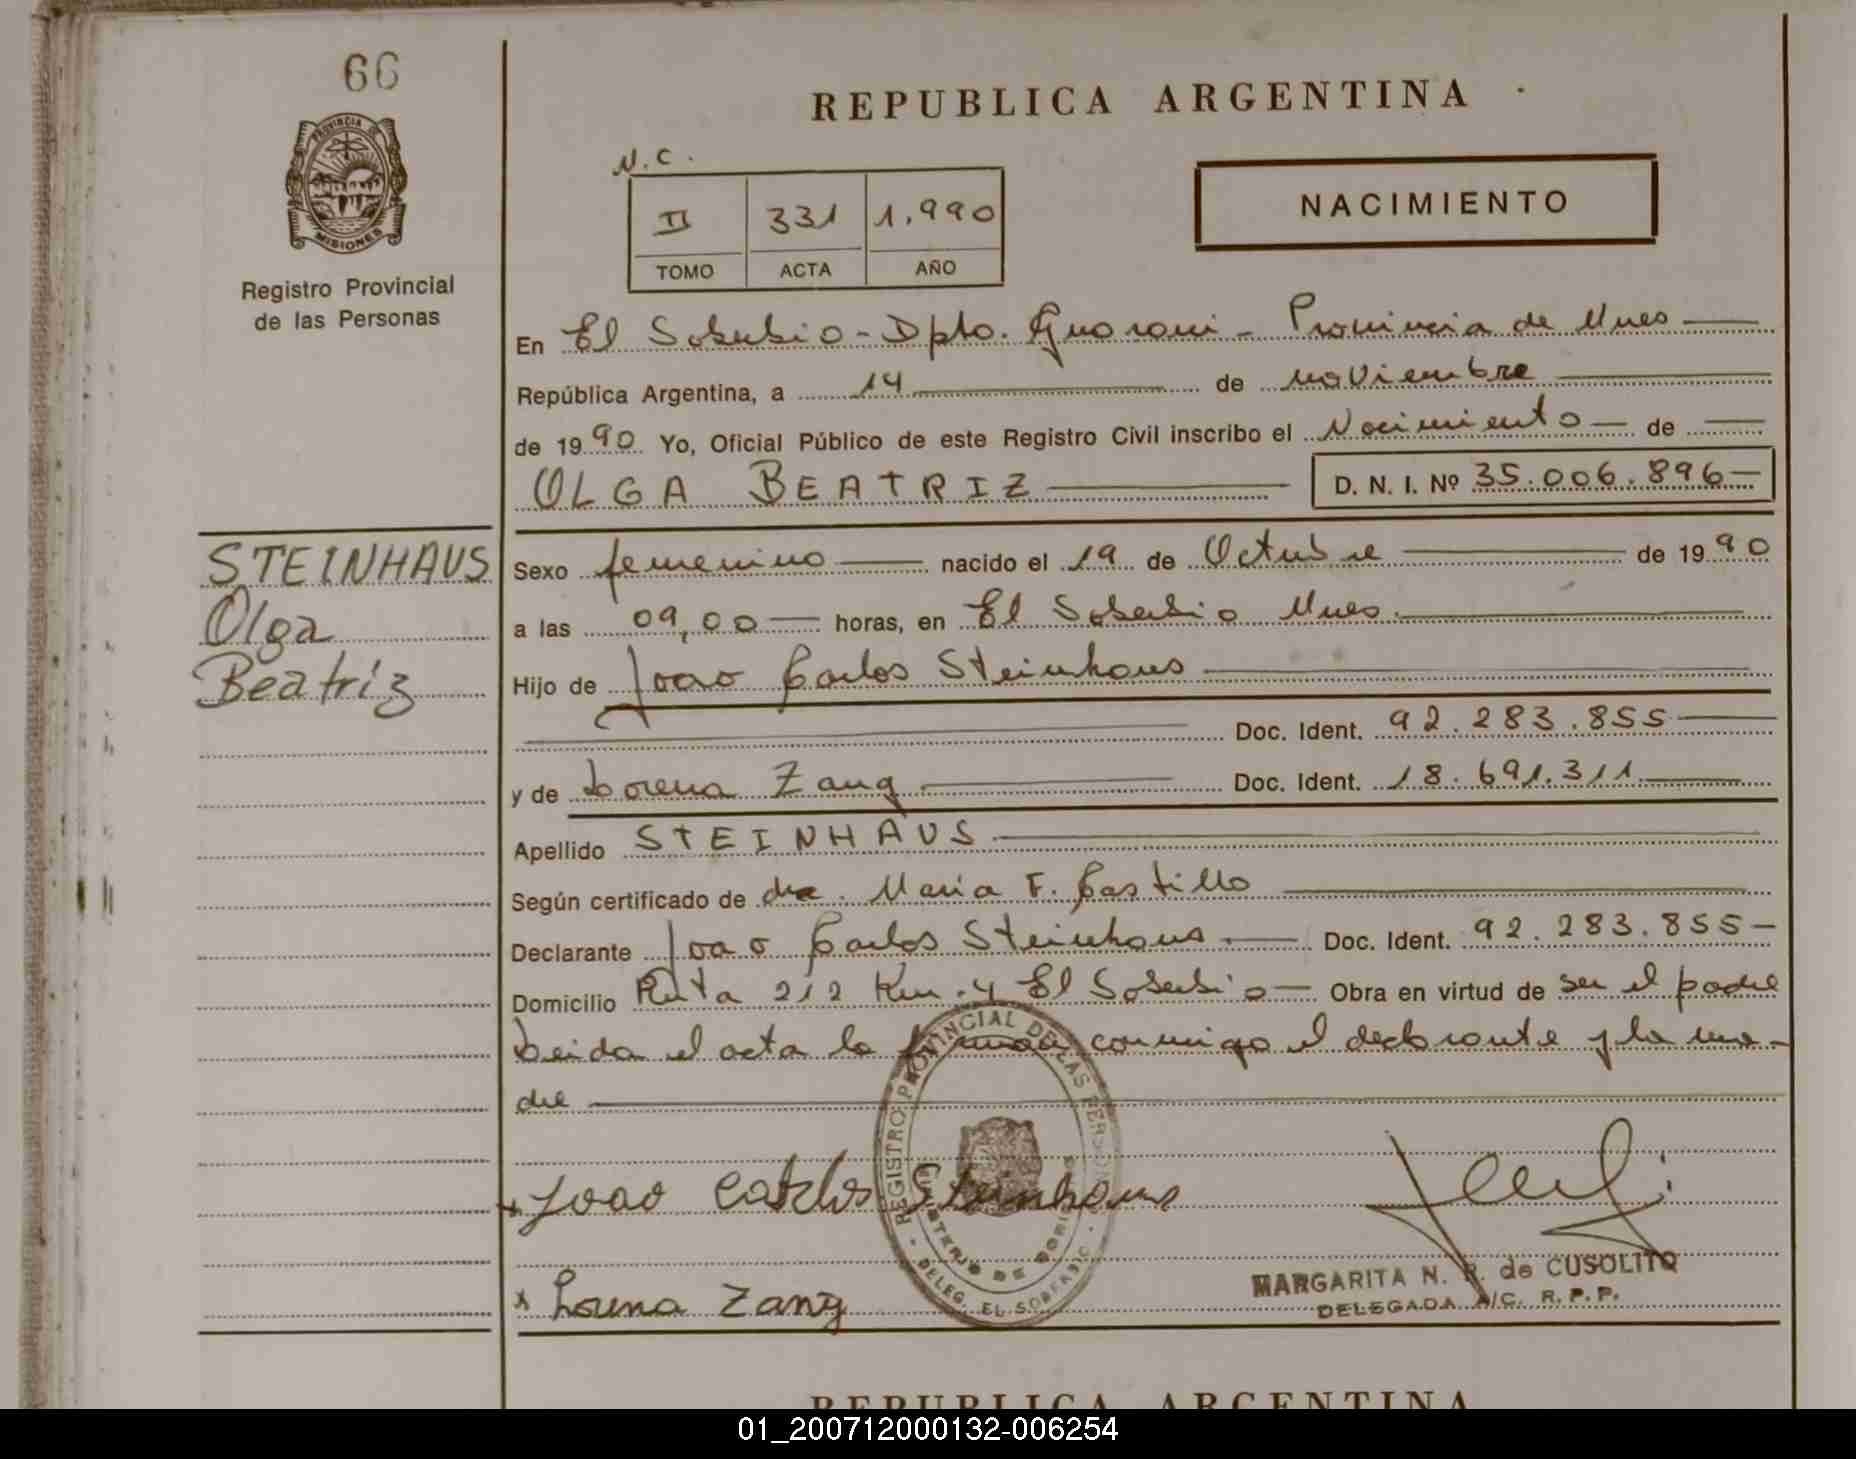 66
REPUBLICA ARGENTINA
PROVINCIA DE
MISIONES
Registro Provincial
de las Personas
N.C.
II 331 1.990
TOMO ACTA AÑO
NACIMIENTO
En El Soberbio - Dpto. Guarani - Provincia de Mnes
República Argentina, a 14 de noviembre
de 1990 Yo, Oficial Público de este Registro Civil inscribo el Nacimiento de
OLGA BEATRIZ D. N. I. Nº 35.006.896
STEINHAUS
Olga
Beatriz
Sexo femenino nacido el 19 de Octubre de 1990
a las 09,00 horas, en El Soberbio Mnes.
Hijo de Joao Carlos Steinhaus
Doc. Ident. 92.283.855
y de Lorena Zang Doc. Ident. 18.691.311
Apellido STEINHAUS
Según certificado de dra. Maria F. Castillo
Declarante Joao Carlos Steinhaus. Doc. Ident. 92.283.855
Domicilio Ruta 212 Km. 4 El Soberbio Obra en virtud de ser el padre
Leida el acta la firman conmigo el declarante y la ma-
dre
REGISTRO PROVINCIAL DE LAS PERSONAS
MINISTERIO DE GOBIERNO
DELEG. EL SOBERBIO
x Joao Carlos Steinhaus
x Lorena Zang
MARGARITA N. R. de CUSOLITO
DELEGADA A/C. R. P. P.
REPUBLICA ARGENTINA
01_200712000132-006254